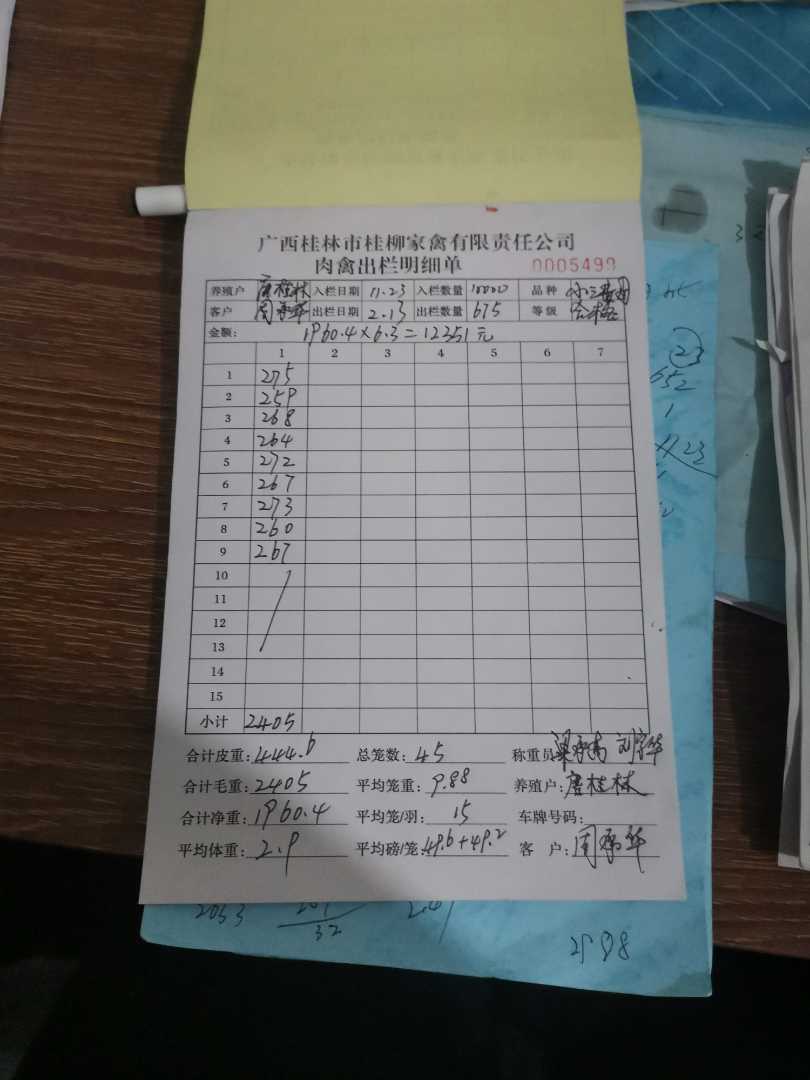 广西桂林市桂柳家禽有限责任公司
肉禽出栏明细单 0005499
养殖户 唐桂林 入栏日期 11.23 入栏数量 10000 品种
客户 周承华 出栏日期 2.13 出栏数量 675 等级 合格
金额: 1960.4×6.3=12351元
1 2 3 4 5 6 7
1 275
2 259
3 268
4 264
5 272
6 267
7 273
8 260
9 267
10
11
12
13
14
15
小计 2405
合计皮重: 444.6 总笼数: 45 称重员
合计毛重: 2405 平均笼重: 9.88 养殖户: 唐桂林
合计净重: 1960.4 平均笼/羽: 15 车牌号码:
平均体重: 2.9 平均磅/笼: 49.6+49.2 客 户: 周承华
23
652
1
23
2053
32
2988